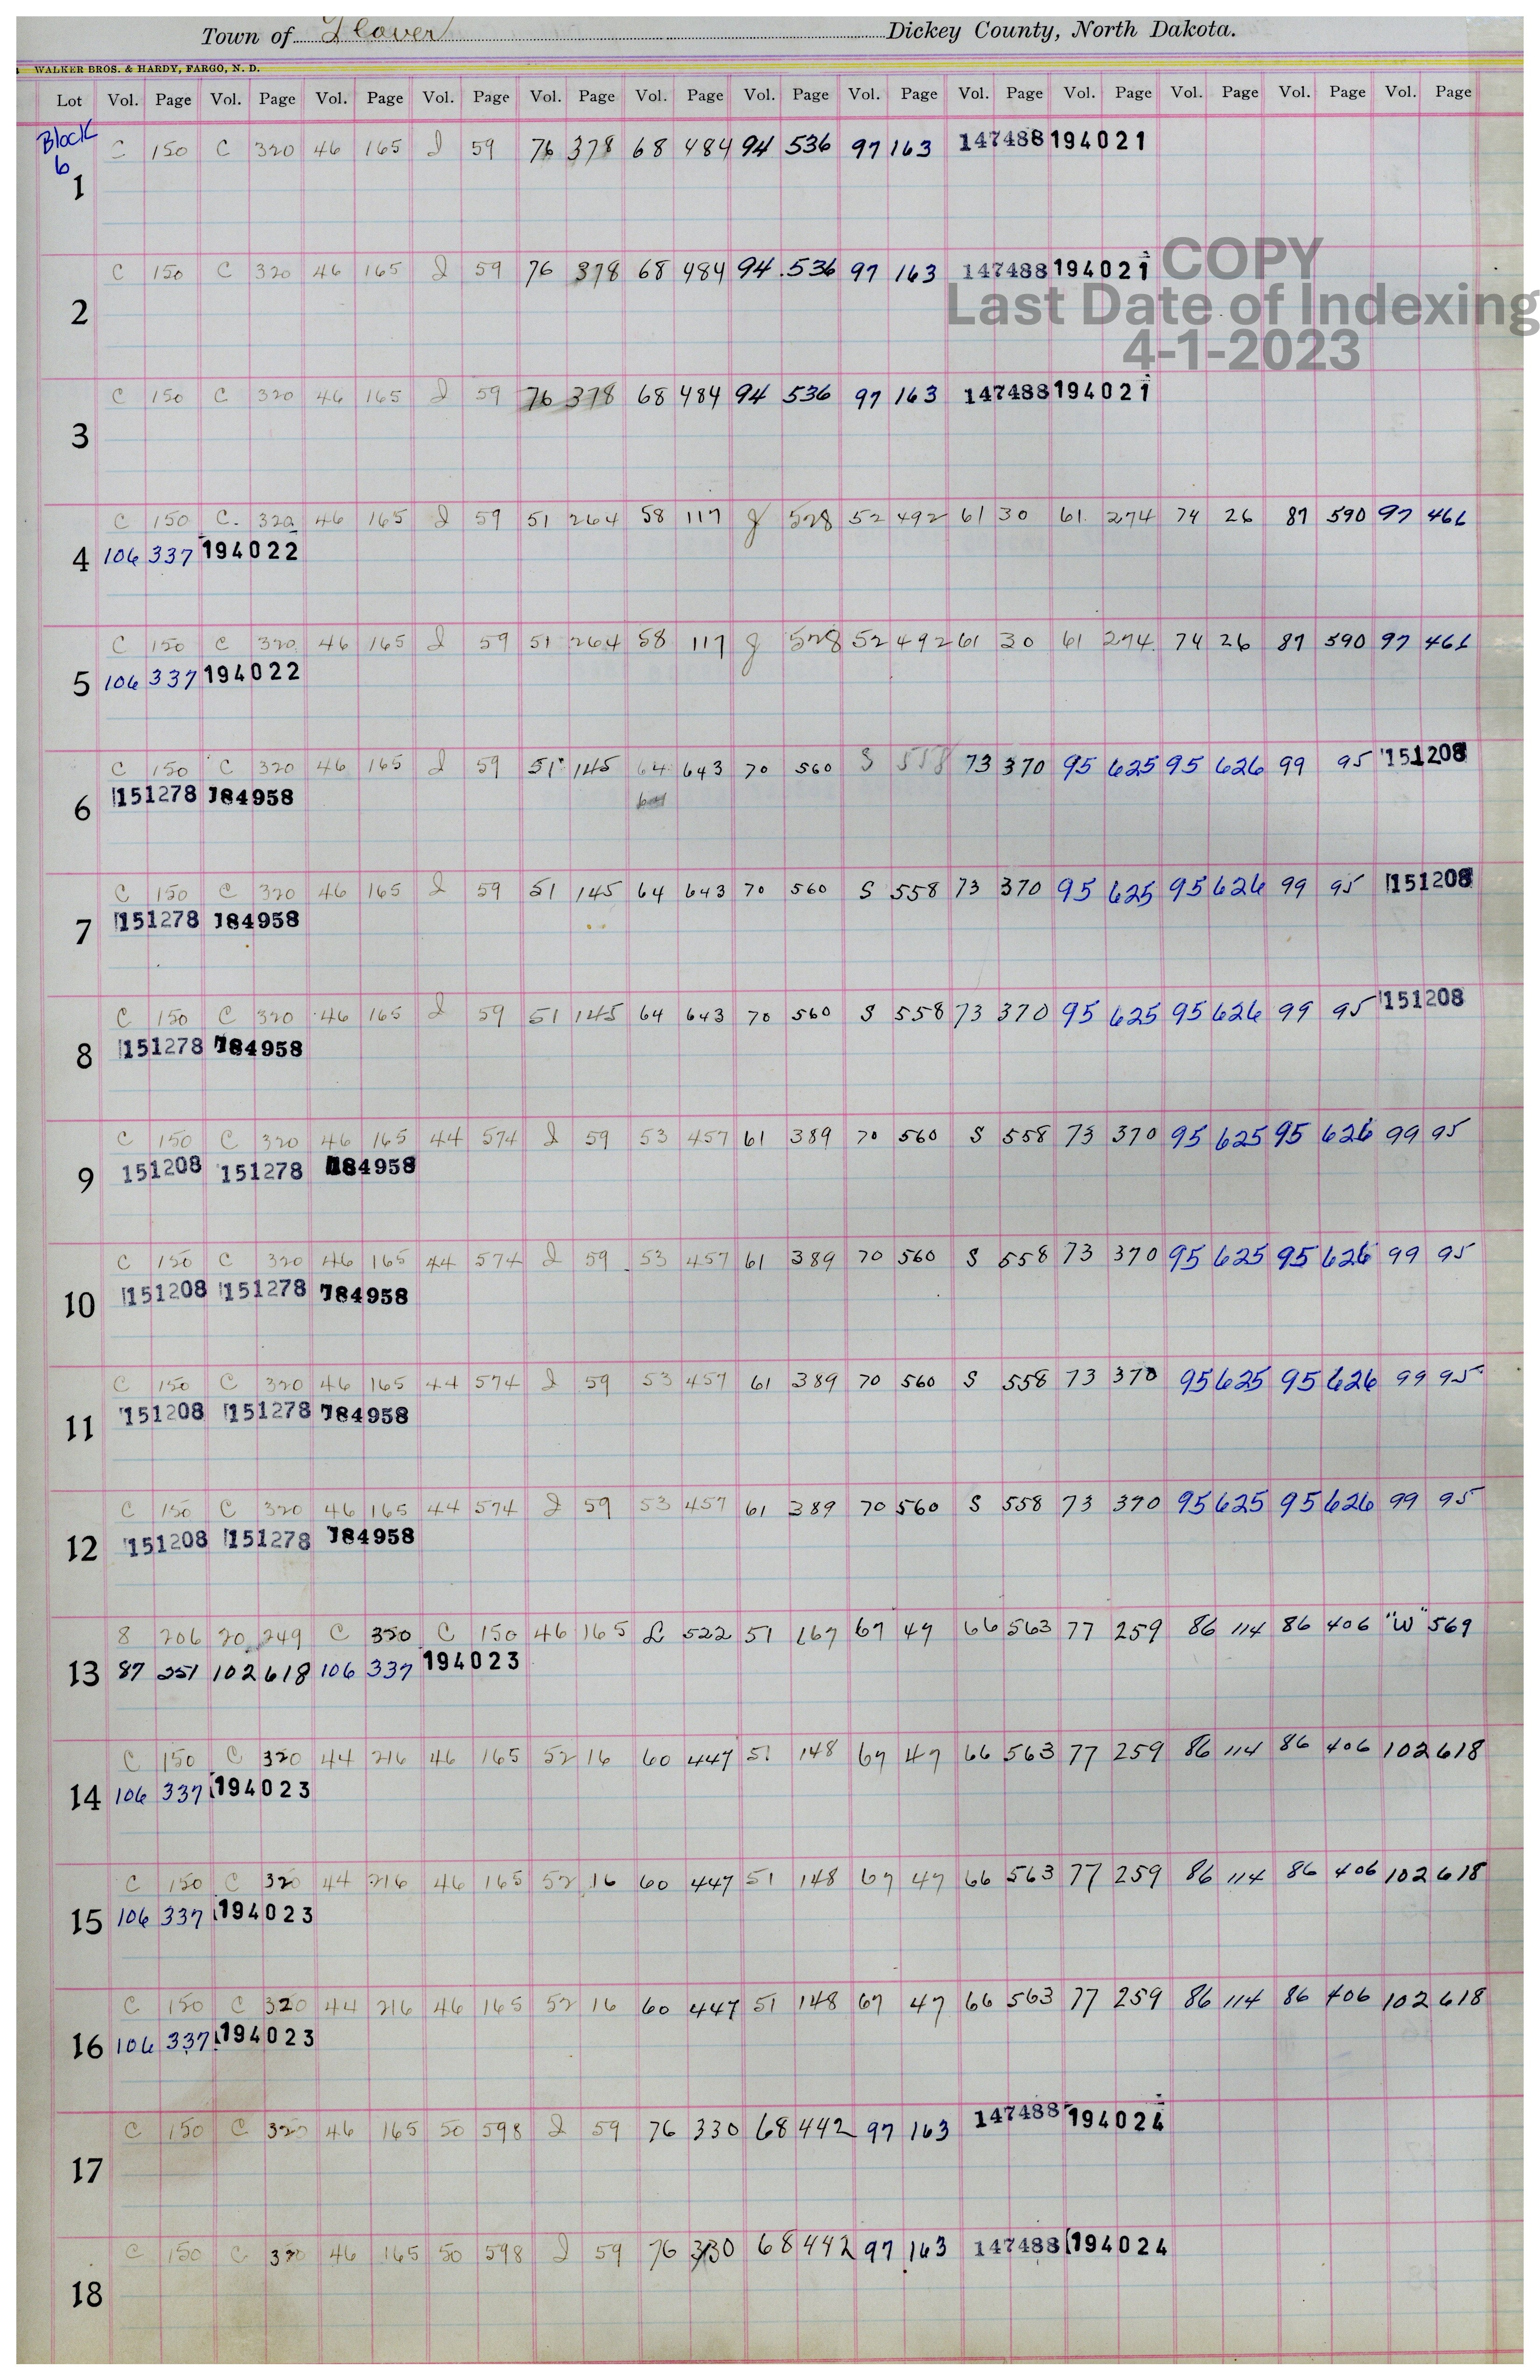 Town of Glover Dickey County, North Dakota.
WALKER BROS. & HARDY, FARGO, N. D.
Lot Vol. Page Vol. Page Vol. Page Vol. Page Vol. Page Vol. Page Vol. Page Vol. Page Vol. Page Vol. Page Vol. Page Vol. Page Vol. Page
Block
6
C 150 C 320 46 165 I 59 76 378 68 484 94 536 97 163 147488 194021
1
C 150 C 320 46 165 I 59 76 378 68 484 94 536 97 163 147488 194021
COPY
Last Date of Indexing
4-1-2023
2
C 150 C 320 46 165 I 59 76 378 68 484 94 536 97 163 147488 194021
3
C 150 C. 320 46 165 I 59 51 264 58 117 g 528 52 492 61 30 61 274 74 26 87 590 97 466
4 106 337 194022
C 150 C 320 46 165 I 59 51 264 58 117 g 528 52 492 61 30 61 274 74 26 87 590 97 466
5 106 337 194022
C 150 C 320 46 165 I 59 51 145 64 643 70 560 S 558 73 370 95 625 95 626 99 95 151208
6 151278 184958
C 150 C 320 46 165 I 59 51 145 64 643 70 560 S 558 73 370 95 625 95 626 99 95 151208
7 151278 184958
C 150 C 320 46 165 I 59 51 145 64 643 70 560 S 558 73 370 95 625 95 626 99 95 151208
8 151278 184958
C 150 C 320 46 165 44 574 I 59 53 457 61 389 70 560 S 558 73 370 95 625 95 626 99 95
9 151208 151278 184958
C 150 C 320 46 165 44 574 I 59 53 457 61 389 70 560 S 558 73 370 95 625 95 626 99 95
10 151208 151278 184958
C 150 C 320 46 165 44 574 I 59 53 457 61 389 70 560 S 558 73 370 95 625 95 626 99 95
11 151208 151278 184958
C 150 C 320 46 165 44 574 I 59 53 457 61 389 70 560 S 558 73 370 95 625 95 626 99 95
12 151208 151278 184958
8 206 20 249 C 320 C 150 46 165 L 522 51 167 67 47 66 563 77 259 86 114 86 406 "W" 569
13 87 251 102 618 106 337 194023
C 150 C 320 44 216 46 165 52 16 60 447 51 148 67 47 66 563 77 259 86 114 86 406 102 618
14 106 337 194023
C 150 C 320 44 216 46 165 52 16 60 447 51 148 67 47 66 563 77 259 86 114 86 406 102 618
15 106 337 194023
C 150 C 320 44 216 46 165 52 16 60 447 51 148 67 47 66 563 77 259 86 114 86 406 102 618
16 106 337 194023
C 150 C 320 46 165 50 598 I 59 76 330 68 442 97 163 147488 194024
17
C 150 C 320 46 165 50 598 I 59 76 330 68 442 97 163 147488 194024
18